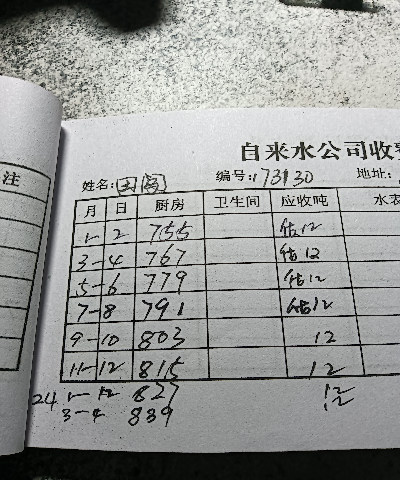 注
自来水公司收
姓名: 编号: 173130 地址:
月 日 厨房 卫生间 应收吨 水表
1-2 755 估12
3-4 767 估12
5-6 779 估12
7-8 791 估12
9-10 803 12
11-12 815 12
24 1-12 827 12
3-4 839